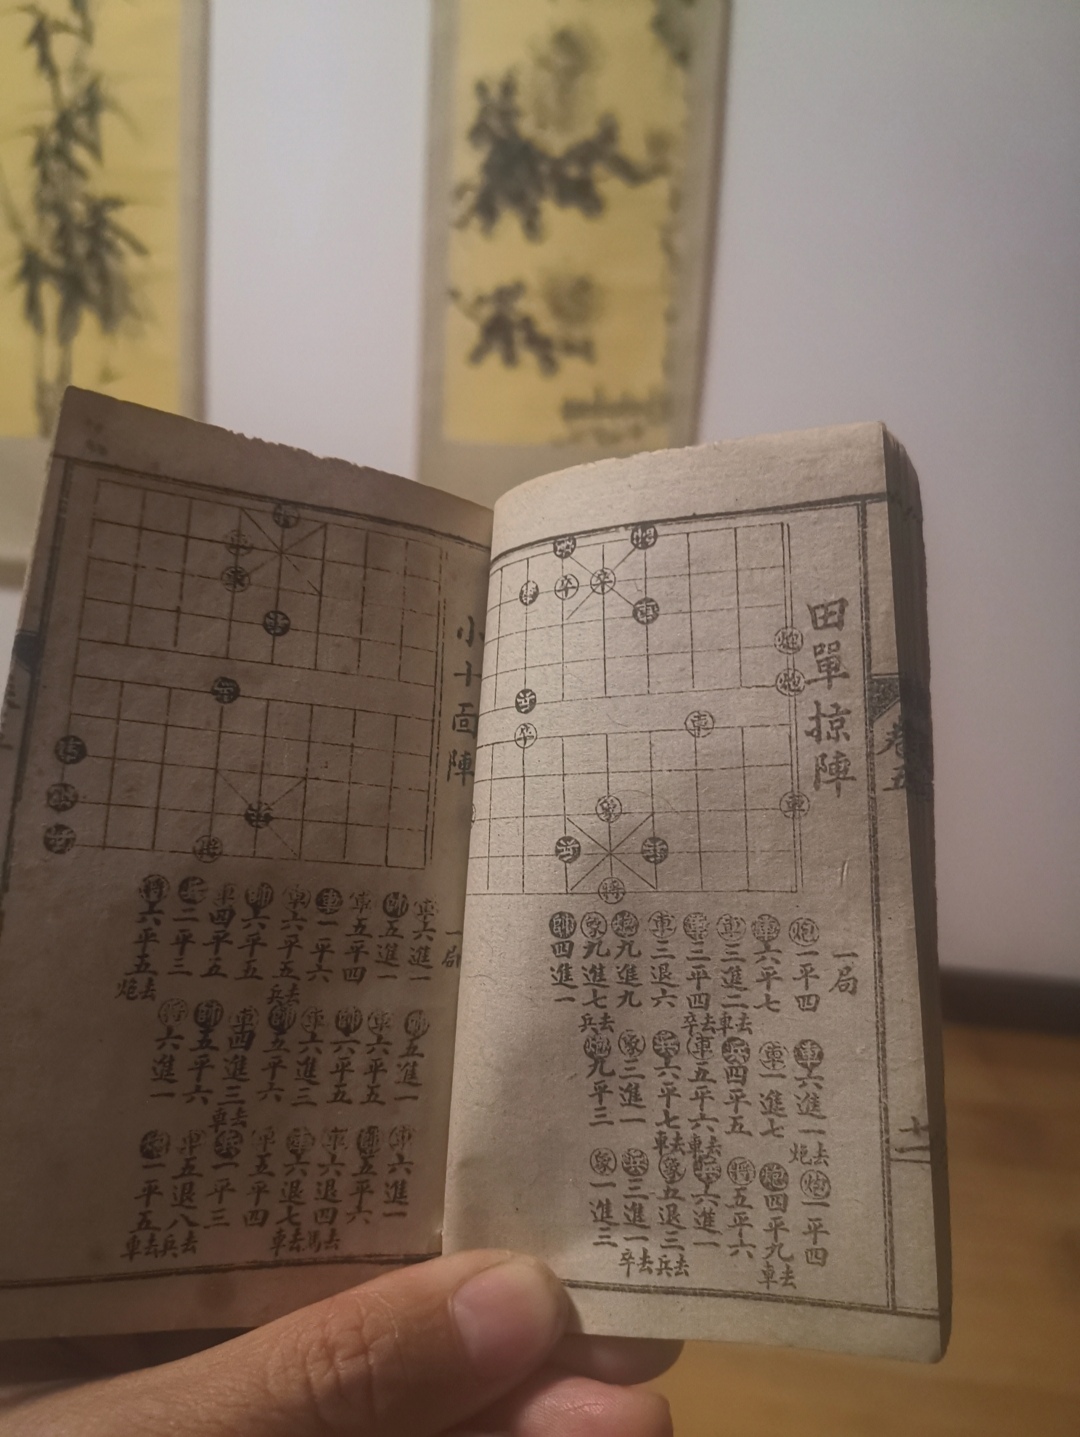 卷五
十一
田單掠陣
一局
炮二平四
車六進一去炮
炮一平四
車六平七
車一進七
炮四平九去車
車三進二去車
兵四平五
將五平六
車三平四去卒
車五平六去車
兵六進一
車三退六
兵六平七去車
象五退三去兵
炮九進九
象三進一
兵三進一去卒
象九進七去兵
炮九平三
象一進三
帥四進一
小十面陣
一局
車六進一
帥五進一
車六進一
帥五進一
車六平五
帥五平六
車五平四
帥六平五
車六退四去馬
車一平六
車六進三
車六退七去車
車六平五去兵
帥五平六
車五平四
帥六平五
車四進三去車
兵一平三
車四平五
帥五平六
車五退八去兵
兵二平三
將六進一
炮一平五去車
將六平五去炮